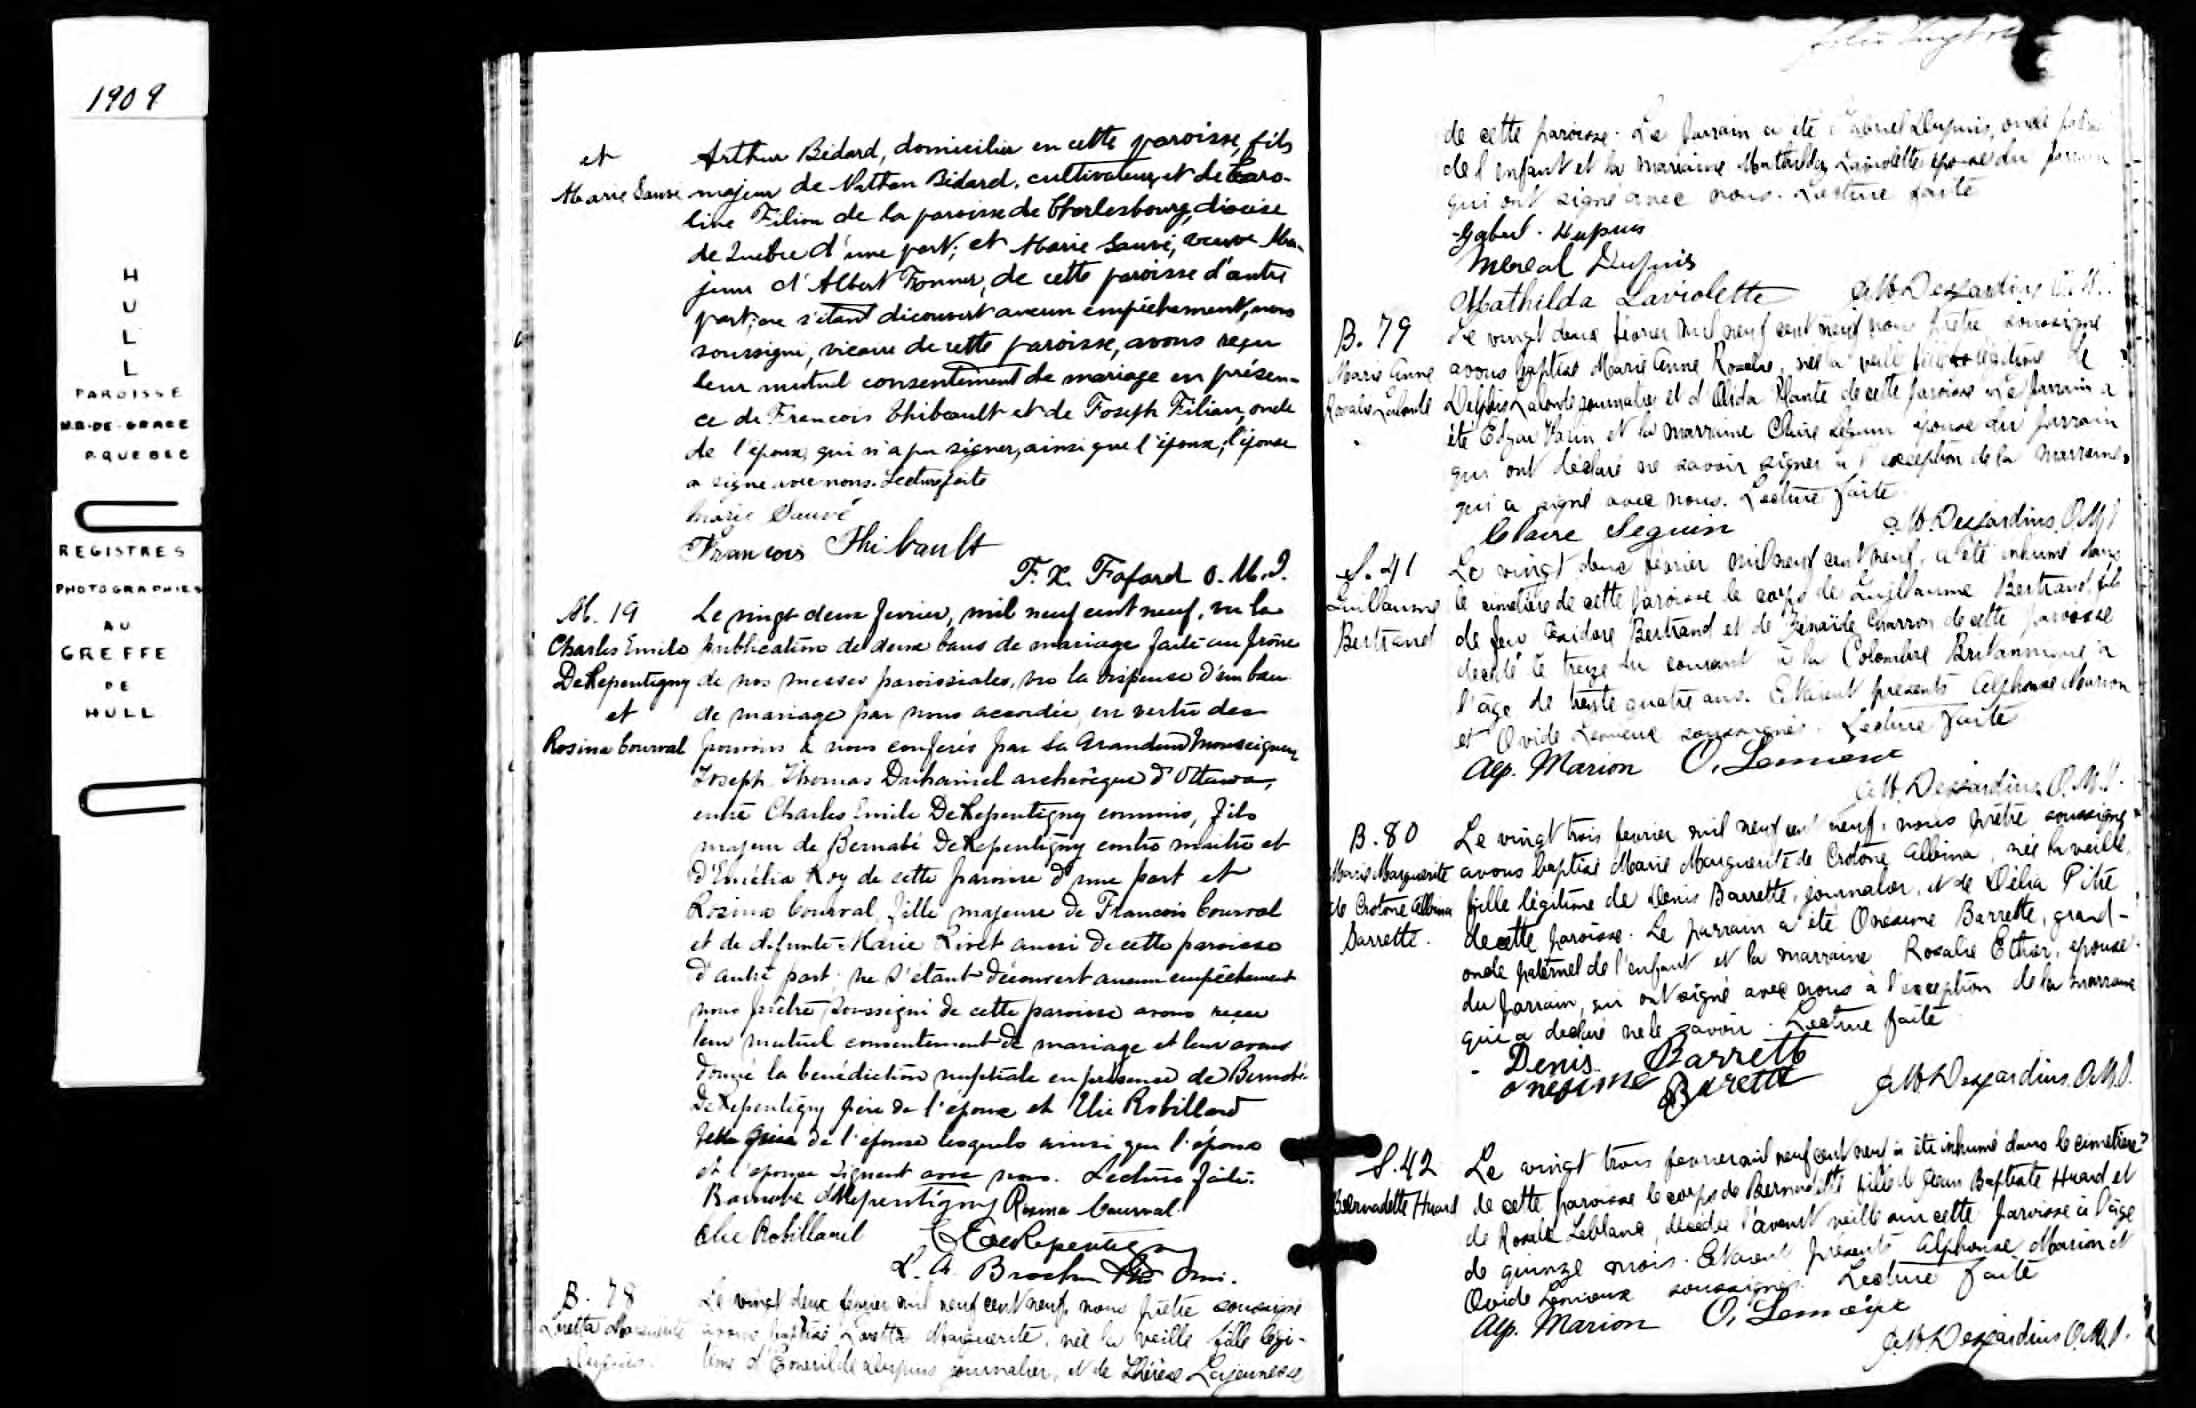 1909
H
U
L
L
PAROISSE
N.D.-DE-GRACE
P. QUEBEC
REGISTRES
PHOTOGRAPHIES
AU
GREFFE
DE
HULL
et
Marie Sauvé
Arthur Bédard, domicilier en cette paroisse, fils
majeur de Nathan Bédard, cultivateur, et de Caro-
line Filion de la paroisse de Charlesbourg, diocèse
de Quebec d'une part; et Marie Sauvé, veuve Ma-
jeure d'Albert de cette paroisse d'autre
part; ne s'étant découvert aucun empêchement, nous
soussigné, vicaire de cette paroisse, avons reçu
leur mutuel consentement de mariage en présen-
ce de François Thibeault et de Joseph Filian, oncle
de l'époux, qui n'a pu signer, ainsi que l'époux, l'épouse
a signé avec nous. Lecture faite
Marie Sauvé
Francois Thibault
F. X. Fafard O.M.I.
M. 19
Charles Emile
DeRepentigny
et
Rosina Courval
Le vingt deux fevrier, mil neuf cent neuf, vu la
publication de deux bans de mariage faite au prône
de nos messes paroissiales, vu la dispense d'un ban
de mariage par nous accordée, en vertu des
pouvoirs à nous conférés par Sa Grandeur Monseigneur
Joseph Thomas Duhamel archevêque d'Ottawa,
entre Charles Emile DeRepentigny commis, fils
majeur de Bernabé DeRepentigny contre maître et
d'Emélia Roy de cette paroisse d'une part et
Rosina Courval, fille majeure de Francois Courval
et de defunte Marie Rivet aussi de cette paroisse
d'autre part; ne s'étant découvert aucun empêchement
nous prêtre soussigné de cette paroisse avons reçu
leur mutuel consentement de mariage et leur avons
donné la bénédiction nuptiale en présence de Bernabé
DeRepentigny père de l'époux et Elie Robillard
de l'épouse lesquels ainsi que l'époux
et l'épouse signent avec nous. Lecture faite.
Barnabé dRepentigny Rosina Courval
Elie Robillard C E deRepentigny
L. A. omi.
B. 78
Loretta Marguerite
Dupuis.
Le vingt deux fevrier mil neuf cent neuf, nous prêtre soussigné
avons baptisé Loretta Marguerite, née la veille fille légi-
time d'Emerilde Dupuis journalier, et de Thérèse Lajeunesse
de cette paroisse. Le parrain a été Gabriel Dupuis, oncle
de l'enfant et la marraine Mathilda Laviolette épouse du parrain
qui ont signé avec nous. Lecture faite
Dupuis
Dupuis
Mathilda Laviolette Desjardins O.M.I.
B. 79
Marie Anne
Rosalie Lalonde
Le vingt deux février mil neuf cent neuf nous prêtre soussigné
avons baptisé Marie Anne Rosalie, née la veille fille légitime de
Delphis Lalonde journalier et d'Alida Plante de cette paroisse. Le parrain a
été Edgar et la marraine Claire Séguin épouse du parrain
qui ont déclaré ne savoir signer à l'exception de la marraine,
qui a signé avec nous. Lecture faite
Claire Seguin Desjardins, O.M.I
S. 41
Guillaume
Bertrand
Le vingt deux février mil neuf cent neuf, a été inhumé dans
le cimetière de cette paroisse le corps de Guillaume Bertrand, fils
de feu Isidore Bertrand et de Zénaïde Charron de cette paroisse
décédé le treize du courant à la Colombie Britannique à
l'âge de trente quatre ans. Etaient présents Alphonse Marion
et Ovide Lemieux soussignés. Lecture faite
Alp. Marion O. Lemieux
Desjardins O.M.I.
B. 80
Marie Marguerite
de Crotone Albina
Barrette.
Le vingt trois fevrier mil neuf cent neuf, nous prêtre soussigné
avons baptisé Marie Marguerite de Crotone Albina, née la veille,
fille légitime de Denis Barrette, journalier, et de Délia Pitre
de cette paroisse. Le parrain a été Onésime Barrette, grand-
oncle paternel de l'enfant et la marraine Rosalie Ethier, épouse
du parrain, qui ont signé avec nous à l'exception de la marraine
qui a déclaré ne le savoir. Lecture faite
Denis Barrette
onesime Barette Desjardins O.M.I.
S. 42
Bernadette Huard
Le vingt trois fevrier mil neuf cent neuf a été inhumé dans le cimetière
de cette paroisse le corps de Bernadette fille de Jean Baptiste Huard et
de Rosale Leblanc, décédée l'avant veille sur cette paroisse à l'âge
de quinze mois. Etaient présents Alphonse Marion et
Ovide Lemieux soussignés. Lecture faite
Alp. Marion O. Lemieux
Desjardins O.M.I.